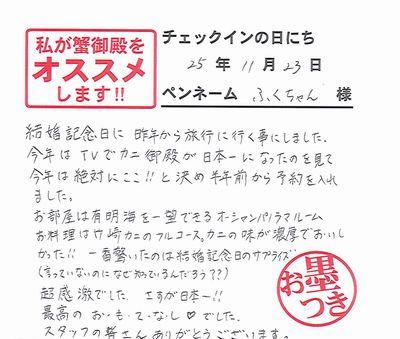 私が蟹御殿を
オススメ
します!!
チェックインの日にち
25年 11月 23日
ペンネーム ふくちゃん 様
結婚記念日に 昨年から旅行に行く事にしました。
今年は TVでカニ御殿が日本一になったのを見て
今年は絶対にここ!! と決め半年前から予約を入れ
ました。
お部屋は有明海を一望できるオーシャンパノラマルーム
お料理は竹崎カニのフルコース。カニの味が濃厚でおいし
かった!! 一番驚いたのは結婚記念日のサプライズ
(言っていないのになぜ知っているんだろう??)
超感激でした。さすが日本一!!
最高の お・も・て・な・し♡でした。
スタッフの皆さんありがとうございます。
お墨つき